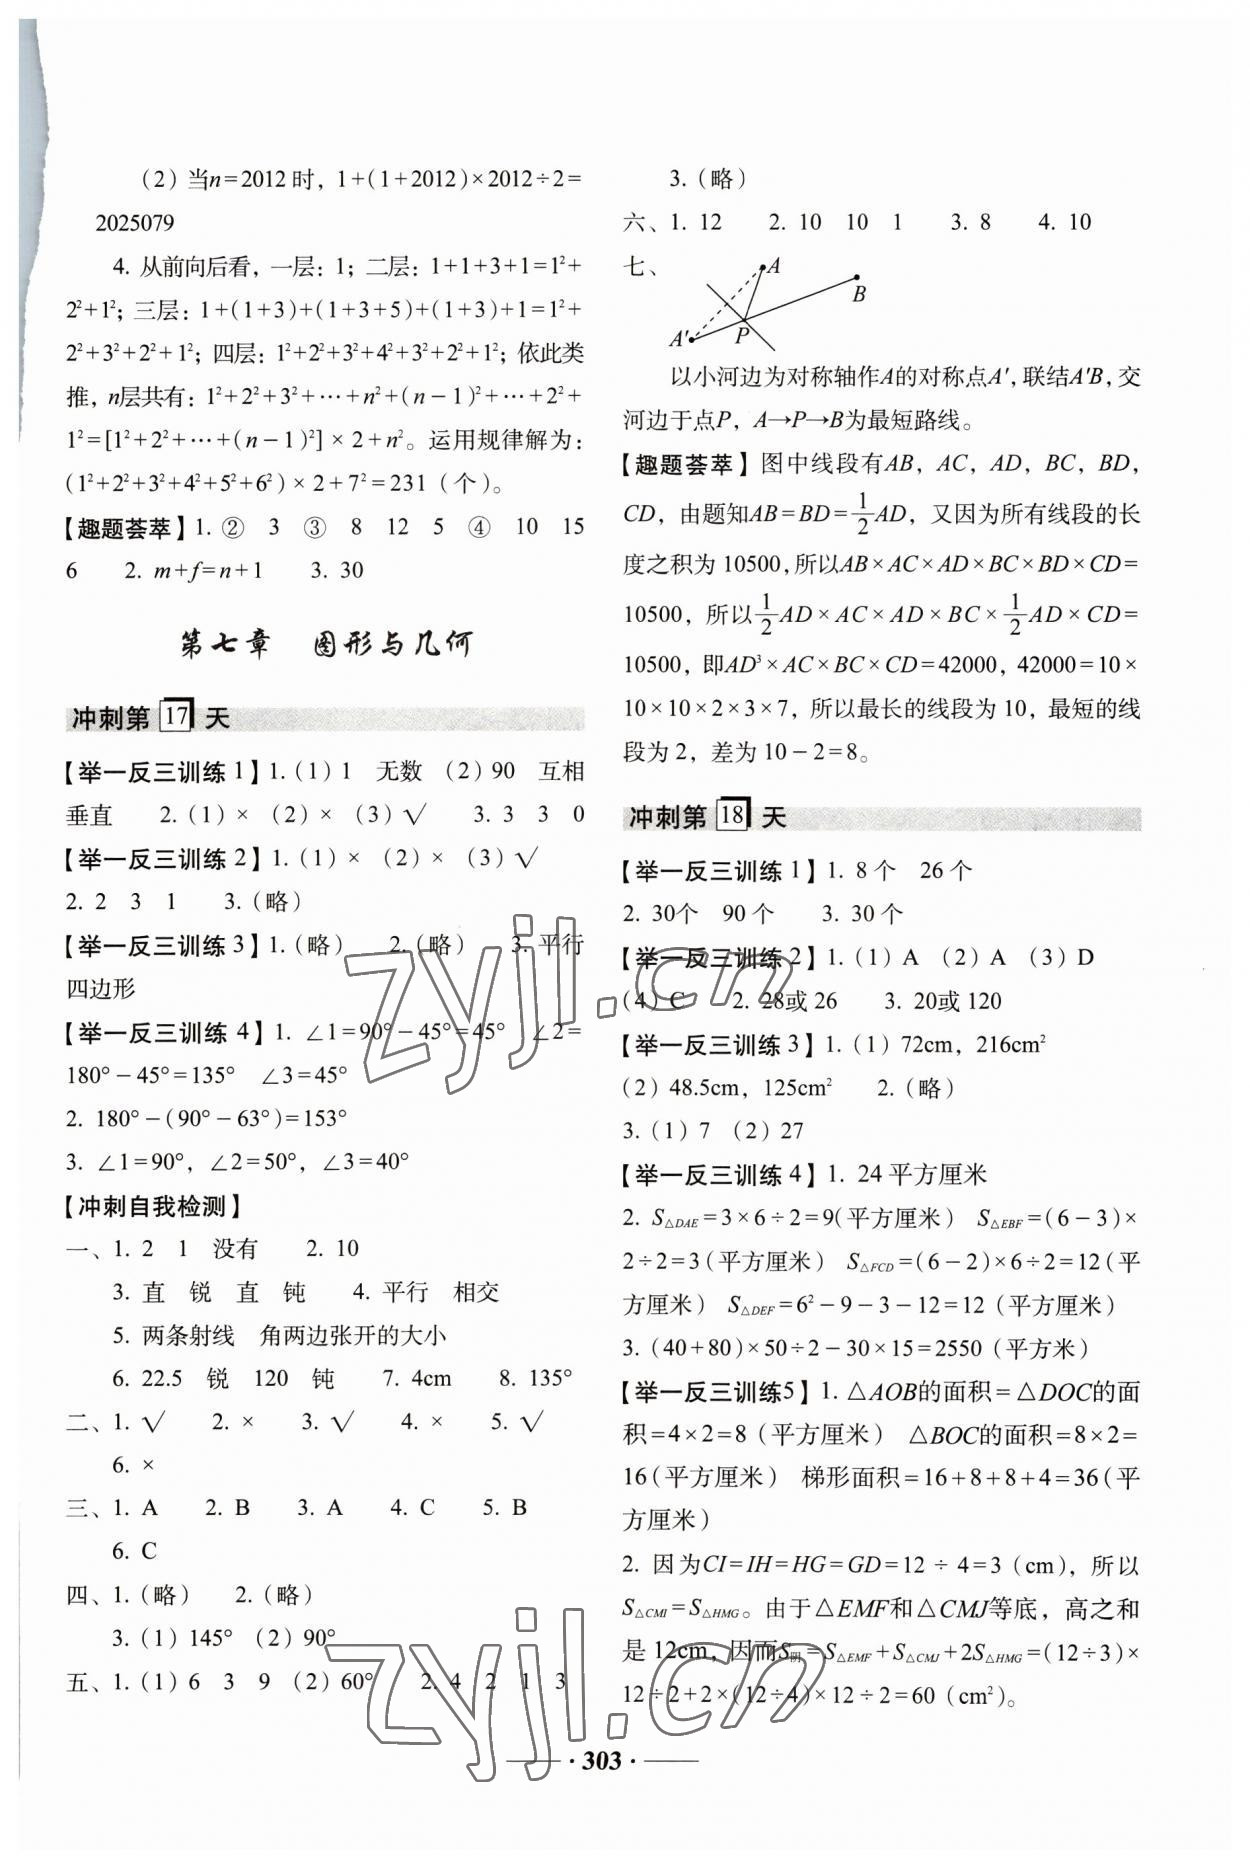 (2) 当n=2012 时，1+(1+2012)×2012÷2=
2025079
4. 从前向后看，一层：1；二层：1+1+3+1=1²+
2²+1²；三层：1+(1+3)+(1+3+5)+(1+3)+1=1²+
2²+3²+2²+1²；四层：1²+2²+3²+4²+3²+2²+1²；依此类
推，n层共有：1²+2²+3²+⋯+n²+(n-1)²+⋯+2²+
1²=[1²+2²+⋯+(n-1)²]×2+n²。运用规律解为：
(1²+2²+3²+4²+5²+6²)×2+7²=231（个）。
【趣题荟萃】1. ② 3 ③ 8 12 5 ④ 10 15
6 2. m+f=n+1 3. 30
第七章 图形与几何
冲刺第 17 天
【举一反三训练 1】1. (1) 1 无数 (2) 90 互相
垂直 2. (1) × (2) × (3) √ 3. 3 3 0
【举一反三训练 2】1. (1) × (2) × (3) √
2. 2 3 1 3.（略）
【举一反三训练 3】1.（略） 2.（略） 3. 平行
四边形
【举一反三训练 4】1. ∠1=90°-45°=45° ∠2=
180°-45°=135° ∠3=45°
2. 180°-(90°-63°)=153°
3. ∠1=90°，∠2=50°，∠3=40°
【冲刺自我检测】
一、1. 2 1 没有 2. 10
3. 直 锐 直 钝 4. 平行 相交
5. 两条射线 角两边张开的大小
6. 22.5 锐 120 钝 7. 4cm 8. 135°
二、1. √ 2. × 3. √ 4. × 5. √
6. ×
三、1. A 2. B 3. A 4. C 5. B
6. C
四、1.（略） 2.（略）
3. (1) 145° (2) 90°
五、1. (1) 6 3 9 (2) 60° 2. 4 2 1 3
3.（略）
六、1. 12 2. 10 10 1 3. 8 4. 10
七、
A
B
A′
P
以小河边为对称轴作A的对称点A′，联结A′B，交
河边于点P，A→P→B为最短路线。
【趣题荟萃】图中线段有AB，AC，AD，BC，BD，
CD，由题知AB=BD=1/2AD，又因为所有线段的长
度之积为 10500，所以AB×AC×AD×BC×BD×CD=
10500，所以1/2AD×AC×AD×BC×1/2AD×CD=
10500，即AD³×AC×BC×CD=42000，42000=10×
10×10×2×3×7，所以最长的线段为 10，最短的线
段为 2，差为 10-2=8。
冲刺第 18 天
【举一反三训练 1】1. 8 个 26 个
2. 30个 90 个 3. 30 个
【举一反三训练 2】1. (1) A (2) A (3) D
(4) C 2. 28或 26 3. 20或 120
【举一反三训练 3】1. (1) 72cm，216cm²
(2) 48.5cm，125cm² 2.（略）
3. (1) 7 (2) 27
【举一反三训练 4】1. 24 平方厘米
2. S△DAE=3×6÷2=9（平方厘米） S△EBF=(6-3)×
2÷2=3（平方厘米） S△FCD=(6-2)×6÷2=12（平
方厘米） S△DEF=6²-9-3-12=12（平方厘米）
3. (40+80)×50÷2-30×15=2550（平方米）
【举一反三训练5】1. △AOB的面积=△DOC的面
积=4×2=8（平方厘米） △BOC的面积=8×2=
16（平方厘米） 梯形面积=16+8+8+4=36（平
方厘米）
2. 因为CI=IH=HG=GD=12÷4=3（cm），所以
S△CMI=S△HMG。由于△EMF和△CMJ等底，高之和
是 12cm，因而S阴=S△EMF+S△CMJ+2S△HMG=(12÷3)×
12÷2+2×(12÷4)×12÷2=60（cm²）。
·303·
zyjl.cn
zyjl.cn